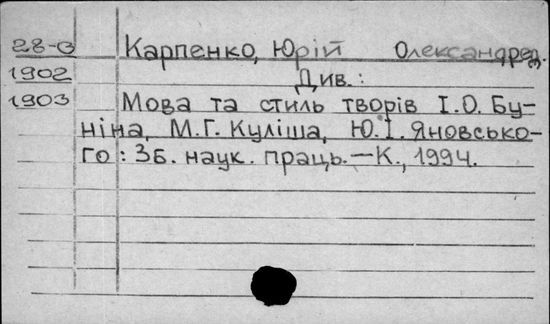 28-О Карпенко, Юрій Олександред.
1902 Див.:
1903 Мова та стиль творів І.О. Бу-
ніна, М.Г. Куліша, Ю.І. Яновсько-
го: Зб. наук. праць.—К., 1994.